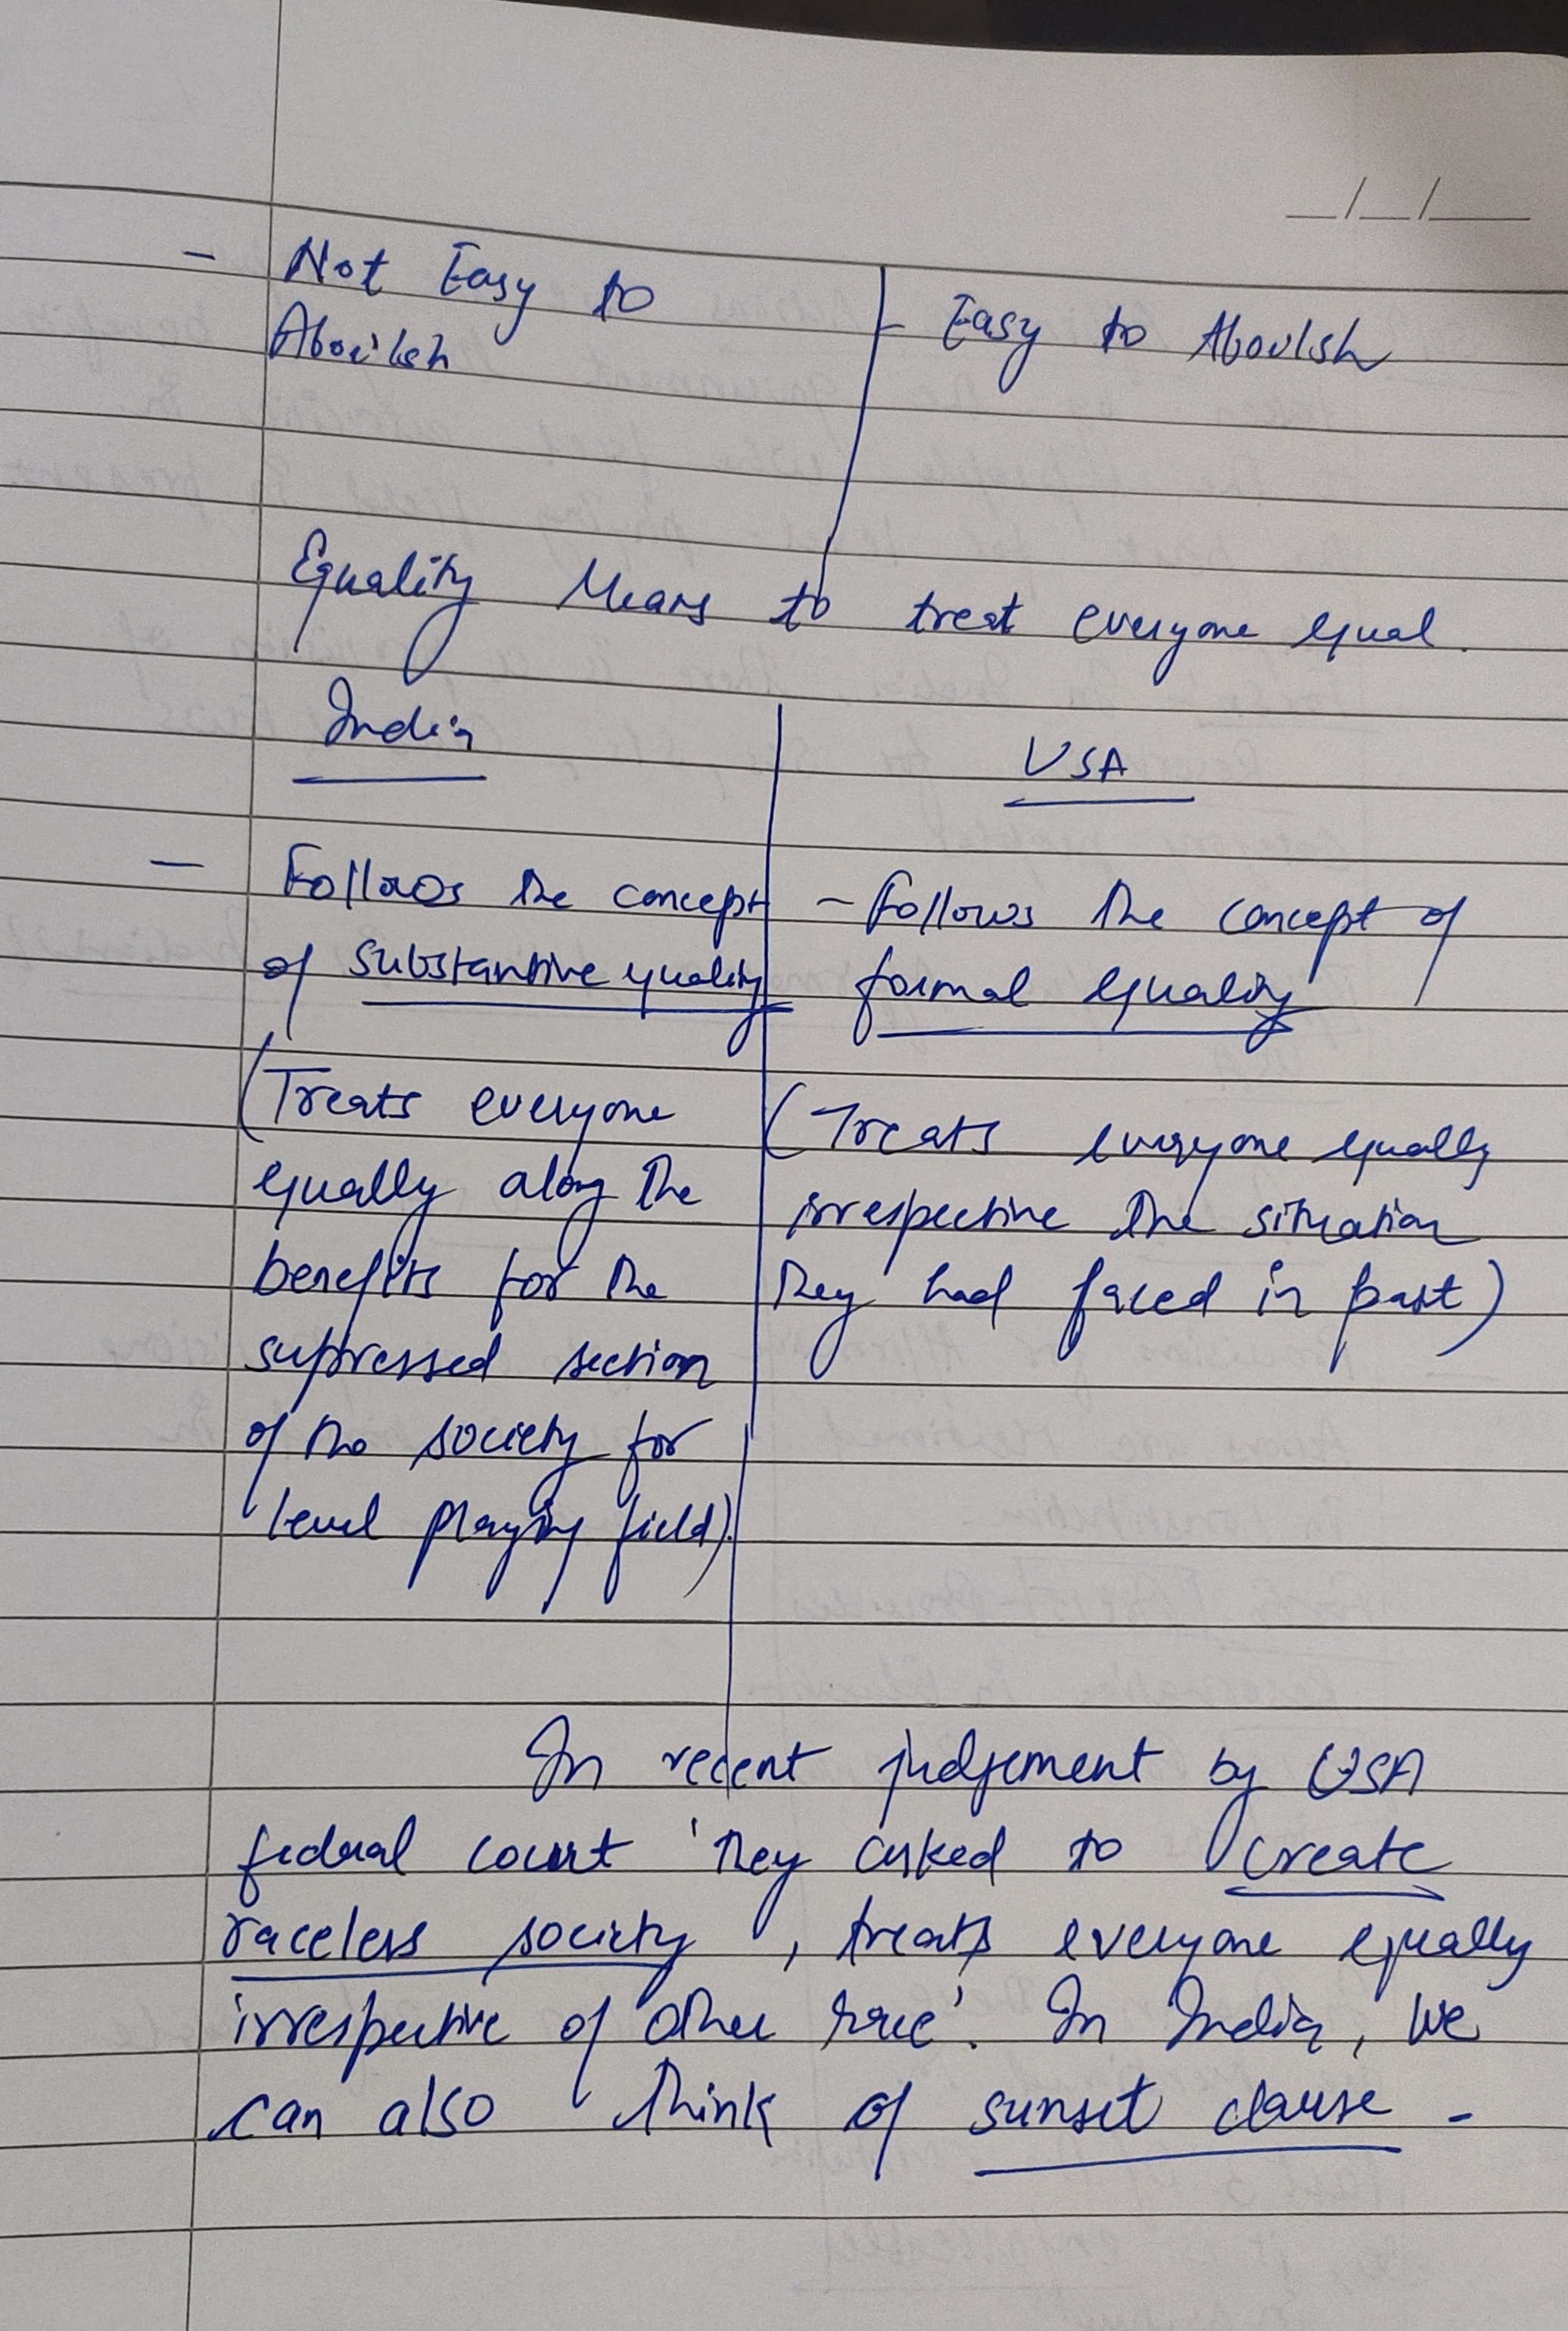 - Not Easy to
Abovilsh
- Easy to Abovlsh
Equality Means to treat everyone equal.
India
USA
- Follows the concept
of substantive equality
(Treats everyone
equally along the
benefits for the
suppressed section
of the society for
level playing field).
- follows the concept of
formal equality
(Treats everyone equally
irrespective the situation
they had faced in past)
In recent judgement by USA
federal court 'they asked to create
raceless society, treats everyone equally
irrespective of other race'. In India, we
can also think of sunset clause -